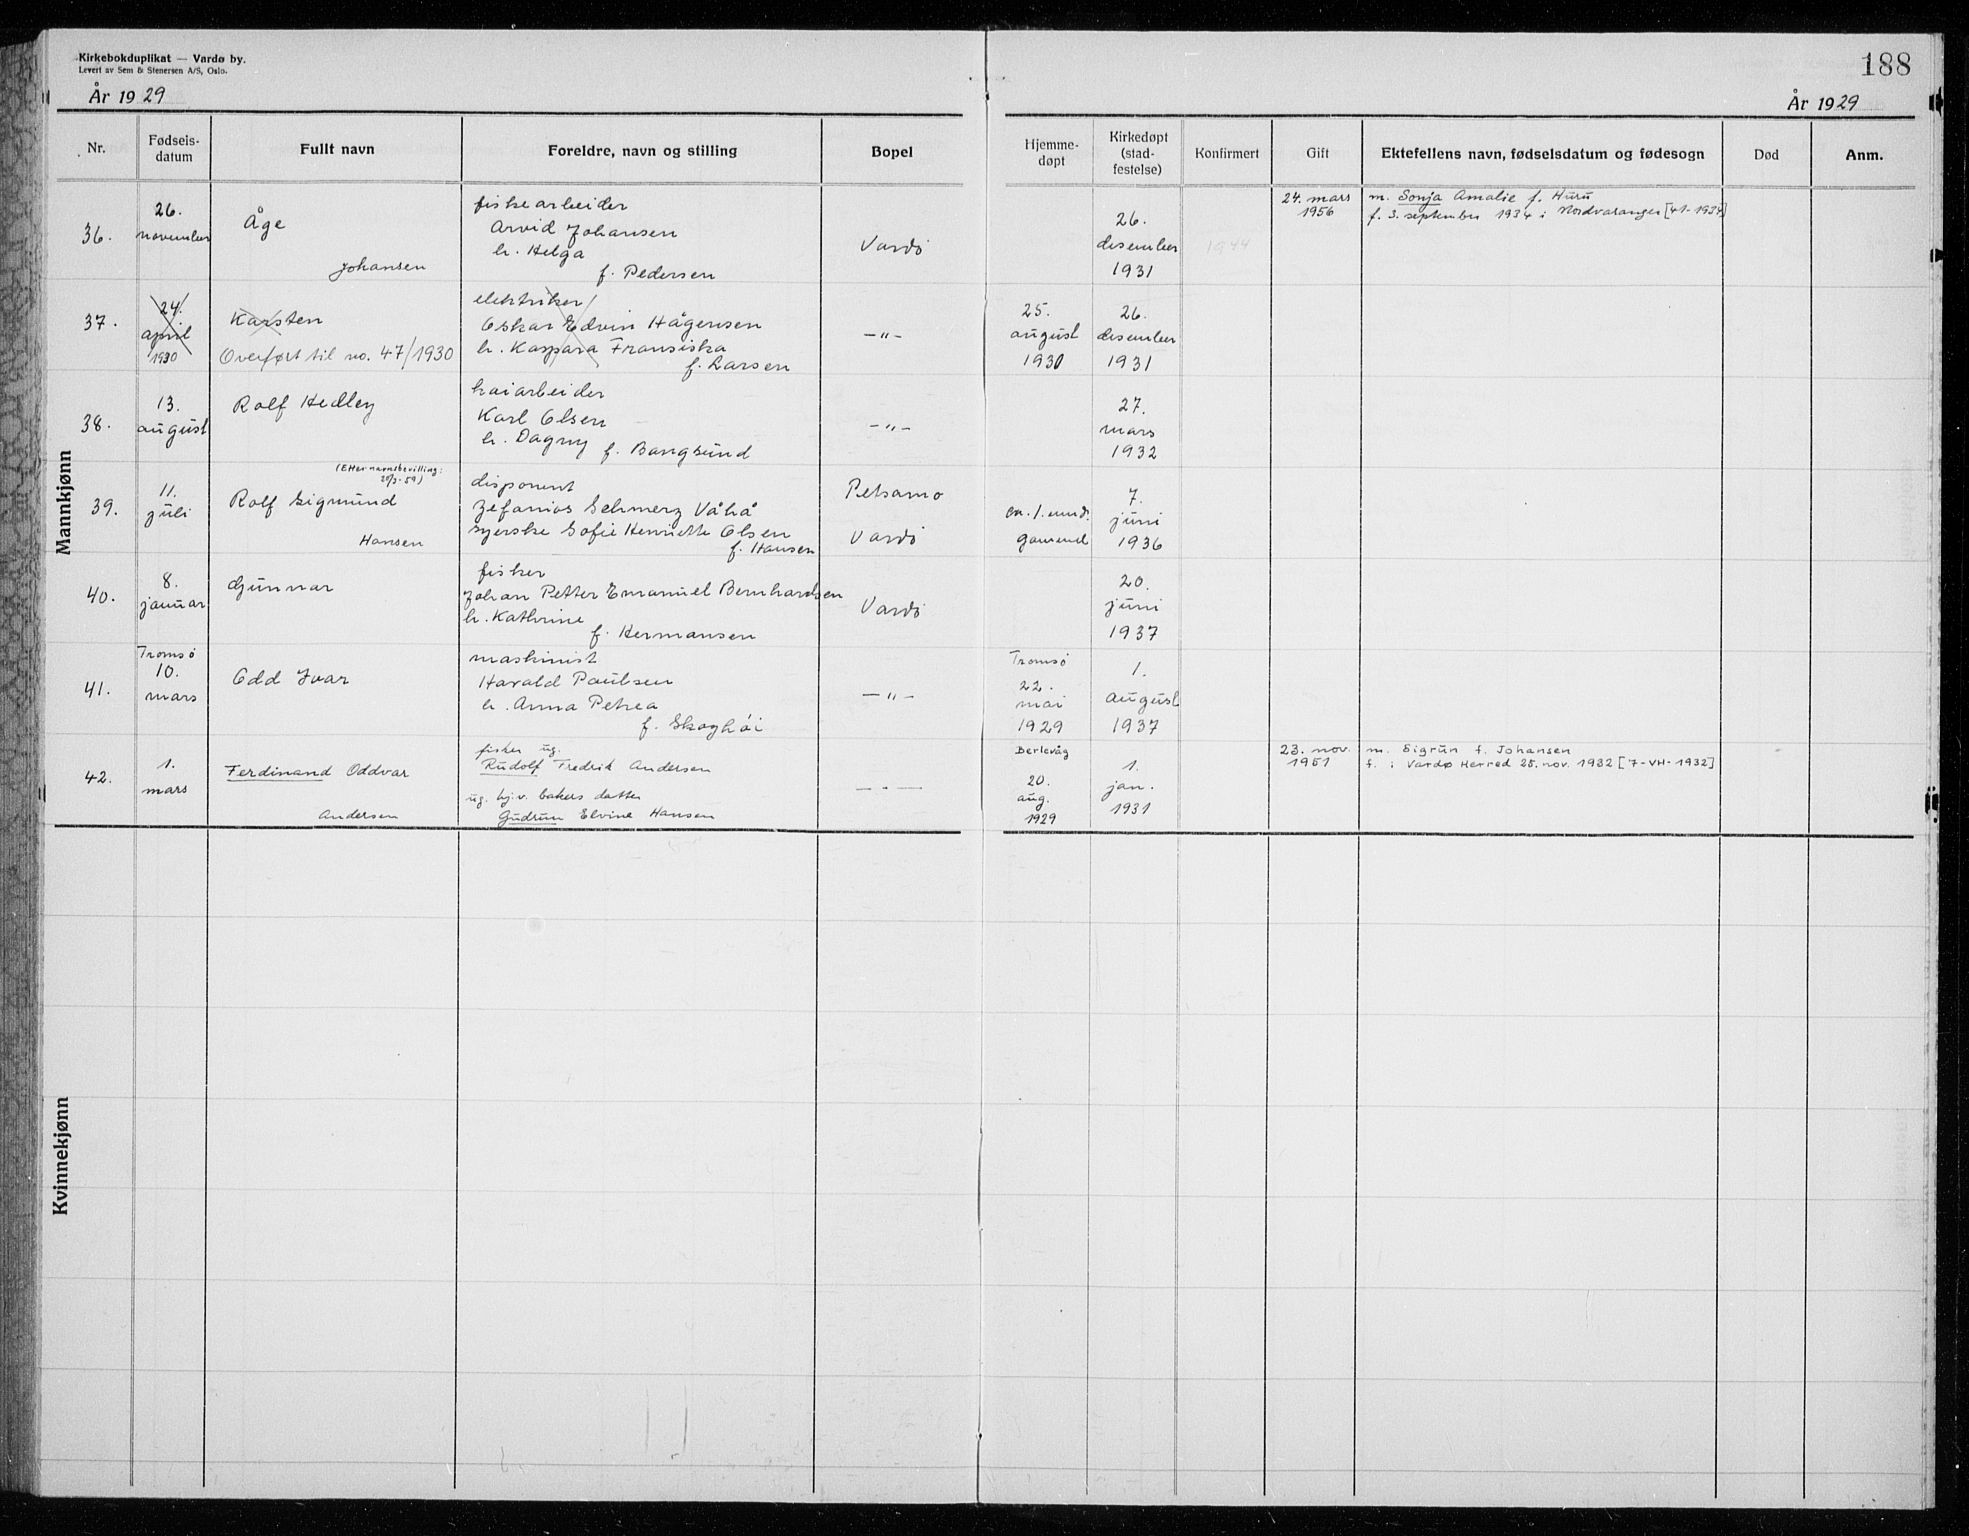 Kirkebokduplikat — Vardø by.
Levert av Sem & Stenersen A/S, Oslo.
188
År 1929
År 1929
Nr. Fødselsdatum Fullt navn Foreldre, navn og stilling Bopel Hjemmedøpt Kirkedøpt (stadfestelse) Konfirmert Gift Ektefellens navn, fødselsdatum og fødesogn Død Anm.
Mannkjønn
36.
26.
november
Åge
Johansen
fiskearbeider
Arvid Johansen
h. Helga
f. Pedersen
Vardö
26.
desember
1931
1944
24. mars
1956
m. Sonja Amalie f. Huru
f. 3. september 1934 i Nordvaranger [41-1934]
37.
24.
april
1930
Karsten
Overført til no. 47/1930
elektriker
Oskar Edvin Hågensen
h. Kaspara Fransiska
f. Larsen
—"—
25.
august
1930
26.
desember
1931
38.
13.
august
Rolf Hedley
kaiarbeider
Karl Olsen
h. Dagny
f. Bangsund
—"—
27.
mars
1932
39.
11.
juli
(Efter navnebevilling:
20/3-59)
Rolf Sigmund
Hansen
disponent
Zefanias Schmerz Våhå
syerske Sofie Henriette Olsen
f. Hansen
Petsamo
Vardö
ca. 1. mnd.
gammel
7.
juni
1936
40.
8.
januar
Gunnar
fisker
Johan Petter Emanuel Bernhardsen
h. Kathrine
f. Hermansen
Vardö
20.
juni
1937
41.
Tromsö
10.
mars
Odd Ivar
maskinist
Harald Paulsen
h. Anna Petrea
f. Skoghöi
—"—
Tromsö
22.
mai
1929
1.
august
1937
42.
1.
mars
Ferdinand Oddvar
Andersen
fisker ug.
Rudolf Fredrik Andersen
ug. hj.v. bakers datter
Gudrun Elvine Hansen
—"—
Berlevåg
20.
aug.
1929
1.
jan.
1931
23. nov.
1951
m. Sigrun f. Johansen
f. i Vardø Herred 25. nov. 1932 [7-VH-1932]
Kvinnekjønn